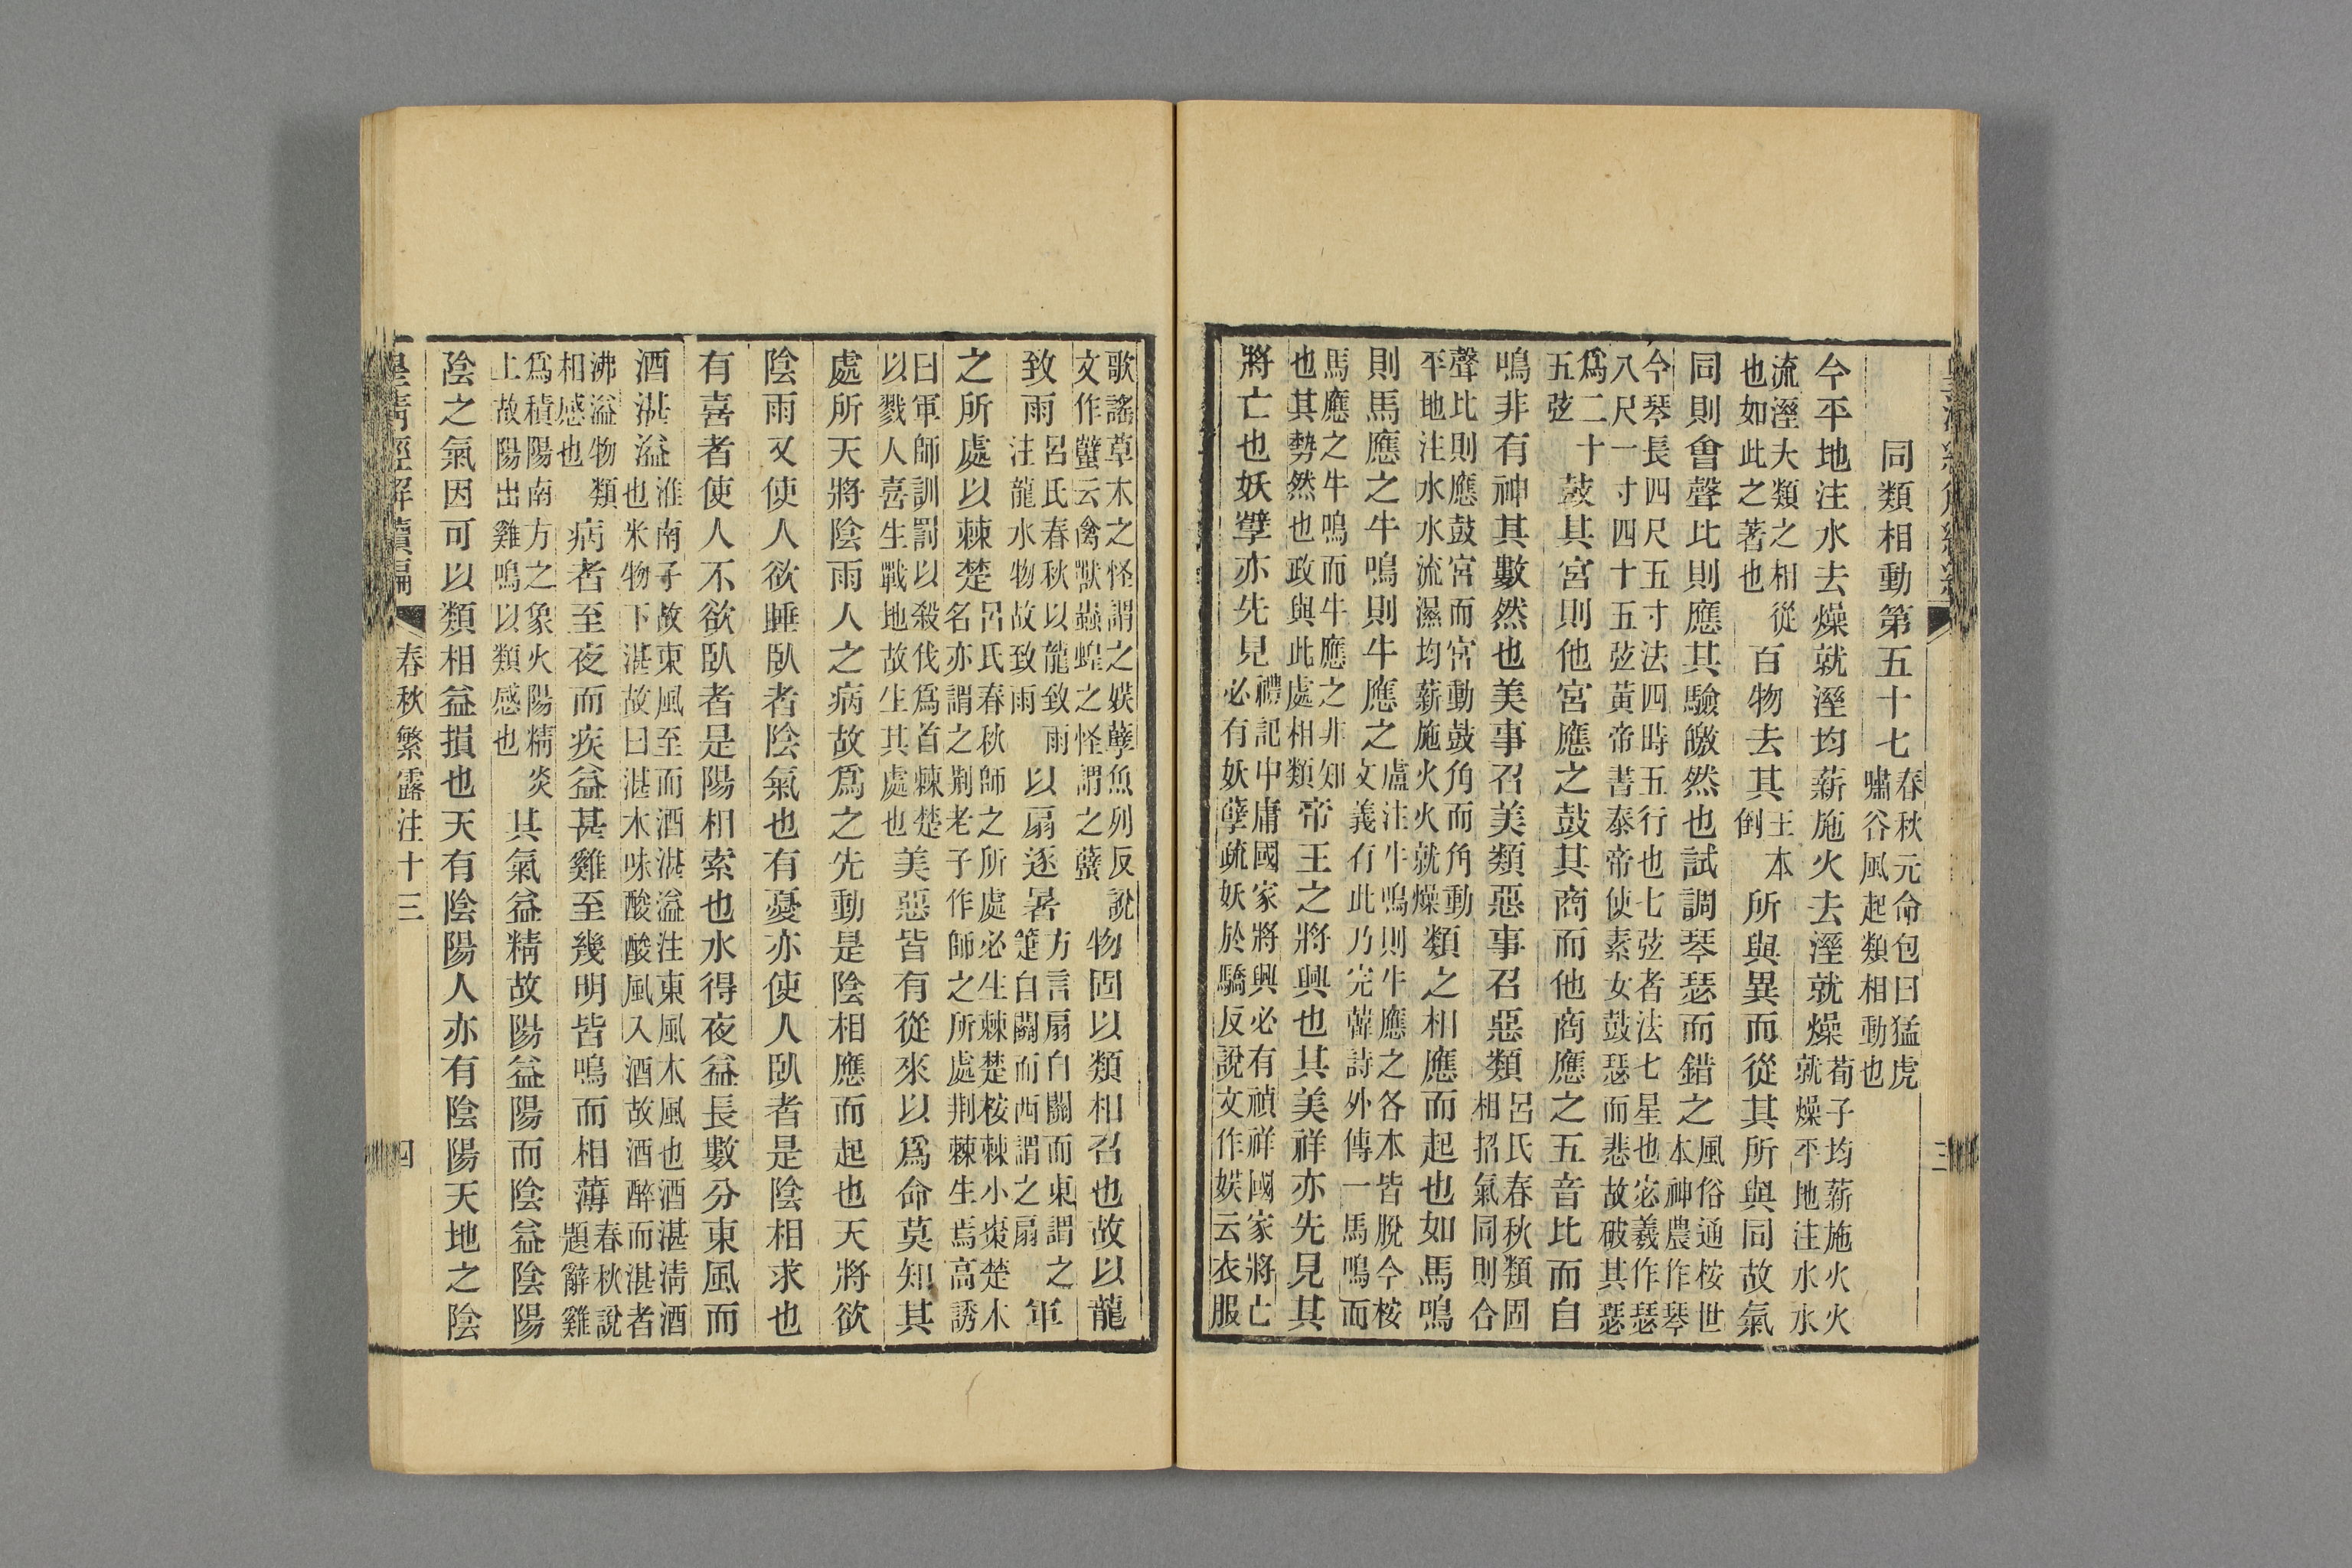 同類相動第五十七春秋元命包曰猛虎嘯谷風起類相動也
今平地注水去燥就溼均薪施火去溼就燥荀子均薪施火火就燥平地注水水
流溼大類之相從也如此之著也百物去其王本倒所與異而從其所與同故氣
同則會聲比則應其驗皦然也試調琴瑟而錯之風俗通桉世本神農作琴
今琴長四尺五寸法四時五行也七弦者法七星也宓羲作瑟八尺一寸四十五弦黃帝書泰帝使素女鼓瑟而悲故破其瑟
爲二十五弦鼓其宮則他宮應之鼓其商而他商應之五音比而自
鳴非有神其數然也美事召美類惡事召惡類呂氏春秋類固相招氣同則合
聲比則應鼓宮而宮動鼓角而角動平地注水水流濕均薪施火火就燥類之相應而起也如馬鳴
則馬應之牛鳴則牛應之盧注牛鳴則牛應之各本皆脫今桉文義有此乃完韓詩外傳一馬鳴而
馬應之牛鳴而牛應之非知也其勢然也政與此處相類帝王之將興也其美祥亦先見其
將亡也妖孼亦先見禮記中庸國家將興必有禎祥國家將亡必有妖孽疏妖於驕反說文作媄云衣服
歌謠草木之怪謂之媄孽魚列反說文作蠥云禽獸蟲蝗之怪謂之蠥物固以類相召也故以龍
致雨呂氏春秋以龍致雨注龍水物故致雨以扇逐暑方言扇自關而東謂之箑自關而西謂之扇軍
之所處以棘楚呂氏春秋師之所處必生棘楚桉棘小棗楚木名亦謂之荆老子作師之所處荆棘生焉高誘
曰軍師訓罰以殺伐爲首棘楚以戮人喜生戰地故生其處也美惡皆有從來以爲命莫知其
處所天將陰雨人之病故爲之先動是陰相應而起也天將欲
陰雨又使人欲睡臥者陰氣也有憂亦使人臥者是陰相求也
有喜者使人不欲臥者是陽相索也水得夜益長數分東風而
酒湛溢淮南子故東風至而酒湛溢注東風木風也酒湛淸酒也米物下湛故曰湛木味酸酸風入酒故酒醉而湛者
沸溢物類相感也病者至夜而疾益甚雞至幾明皆鳴而相薄春秋說題辭雞
爲積陽南方之象火陽精炎上故陽出雞鳴以類感也其氣益精故陽益陽而陰益陰陽
陰之氣因可以類相益損也天有陰陽人亦有陰陽天地之陰
皇淸經解續編 春秋繁露注十三 四